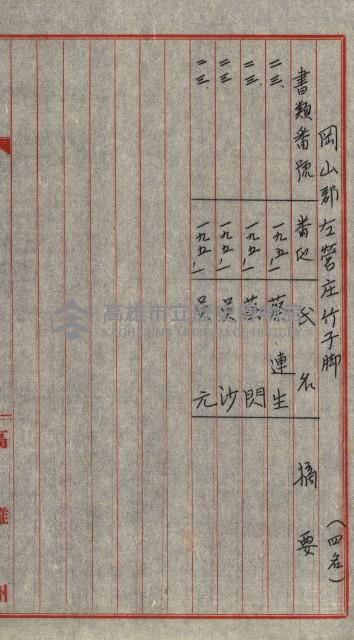 岡山郡左營庄竹子脚
(四名)
書類番號 番地 氏名 摘要
二三、 一九五ノ一 蔡連生
二三、 一九五ノ一 蔡閃
二三、 一九五ノ一 吳沙
二三、 一九五ノ一 吳元
高雄州
高雄市立歷史博物館
KAOHSIUNG MUSEUM OF HISTORY